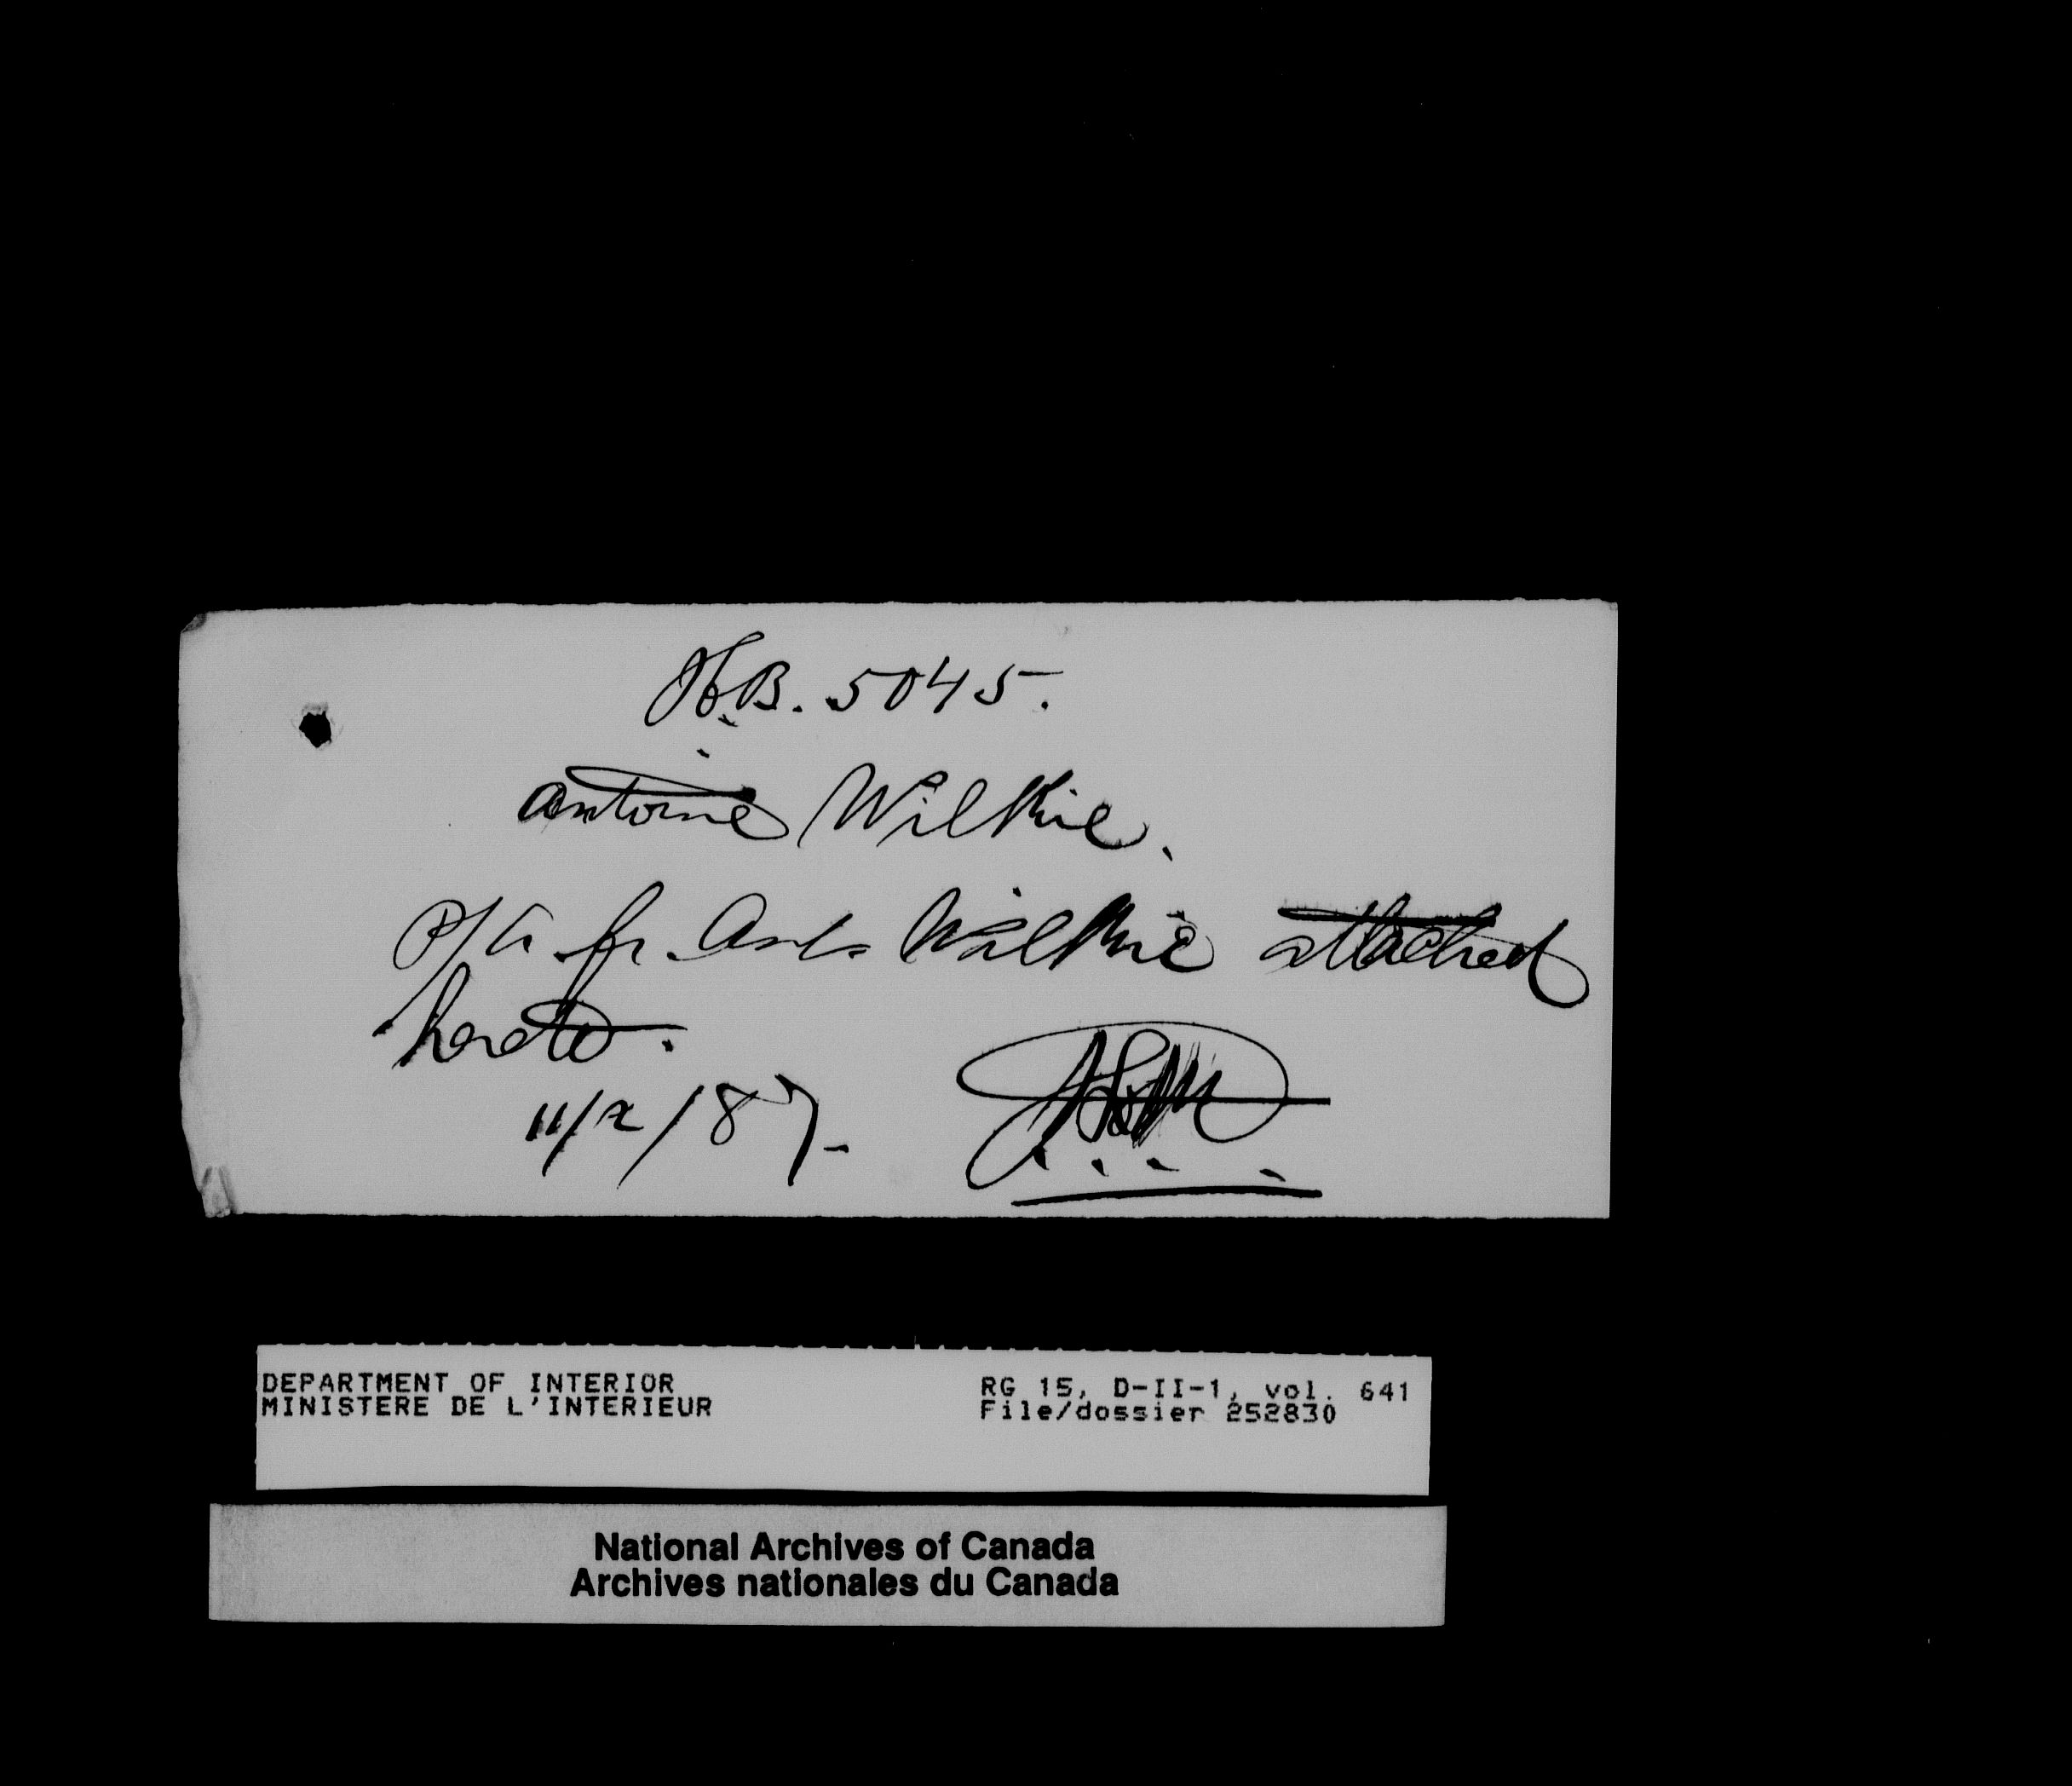 H.B. 5045.
Antoine Wilkie.
P/A fr. Ant. Wilkie attached
hereto.
11/2/87.
DEPARTMENT OF INTERIOR RG 15, D-II-1, vol. 641
MINISTERE DE L'INTERIEUR File/dossier 252830
National Archives of Canada
Archives nationales du Canada